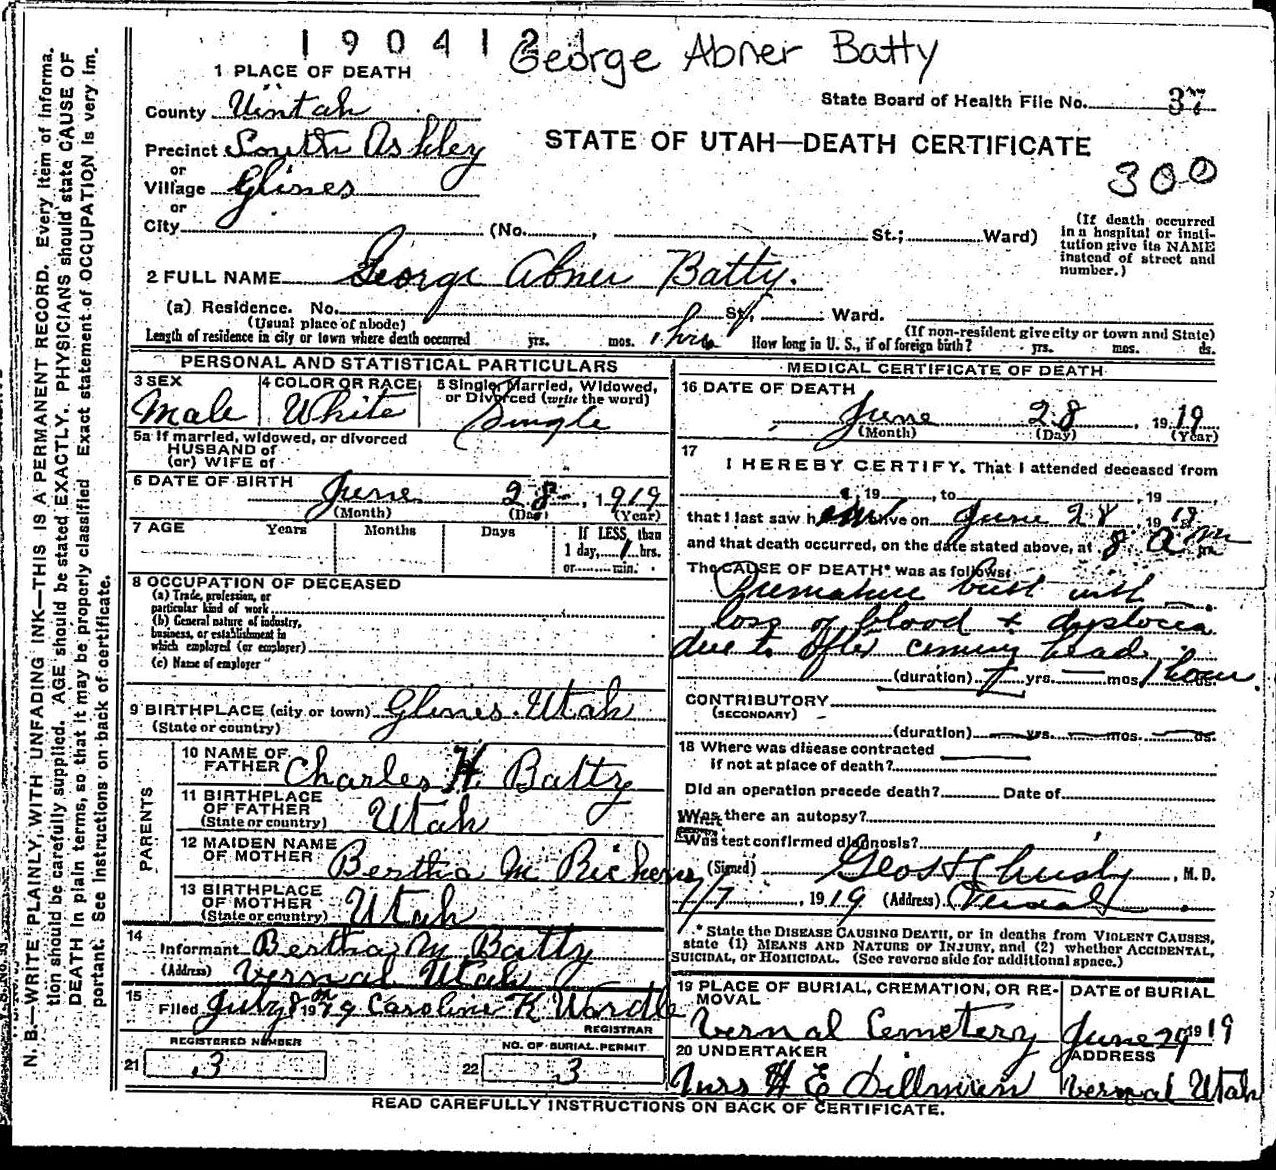 1904121
George Abner Batty
1 PLACE OF DEATH
State Board of Health File No. 37
County Uintah
STATE OF UTAH—DEATH CERTIFICATE
Precinct South Ashley
or
Village Glines
300
or
City (No. , St.; Ward)
(If death occurred in a hospital or insti-tution give its NAME instead of street and number.)
2 FULL NAME George Abner Batty.
(a) Residence. No. St., Ward.
(Usual place of abode) (If non-resident give city or town and State)
Length of residence in city or town where death occurred yrs. mos. 1 hrs How long in U. S., if of foreign birth? yrs. mos. ds.
PERSONAL AND STATISTICAL PARTICULARS
3 SEX 4 COLOR OR RACE 5 Single, Married, Widowed, or Divorced (write the word)
Male White Single
5a If married, widowed, or divorced
HUSBAND of
(or) WIFE of
6 DATE OF BIRTH June 28 - , 1919
(Month) (Day) (Year)
7 AGE Years Months Days If LESS than 1 day, 1 hrs. or min.
8 OCCUPATION OF DECEASED
(a) Trade, profession, or particular kind of work
(b) General nature of industry, business, or establishment in which employed (or employer)
(c) Name of employer
9 BIRTHPLACE (city or town) Glines Utah
(State or country)
PARENTS
10 NAME OF FATHER Charles H. Batty
11 BIRTHPLACE OF FATHER (State or country) Utah
12 MAIDEN NAME OF MOTHER Bertha M
13 BIRTHPLACE OF MOTHER (State or country) Utah
14 Informant Bertha M Batty
(Address) Vernal Utah
15 Filed July 8 1919 Caroline K Wardle
REGISTRAR
REGISTERED NUMBER NO. OF BURIAL PERMIT
21 3 22 3
MEDICAL CERTIFICATE OF DEATH
16 DATE OF DEATH
June 28, 1919
(Month) (Day) (Year)
17 I HEREBY CERTIFY, That I attended deceased from
, 19 , to , 19
that I last saw him alive on June 28, 19
and that death occurred, on the date stated above, at 8 A m
The CAUSE OF DEATH* was as follows:
Premature birth with
loss of blood &
due to after coming head.
(duration) yrs. mos. 1 hour
CONTRIBUTORY
(SECONDARY)
(duration) yrs. mos. ds.
18 Where was disease contracted
if not at place of death?
Did an operation precede death? Date of
Was there an autopsy?
What test confirmed diagnosis?
(Signed) , M. D.
7/7, 1919 (Address) Vernal
* State the DISEASE CAUSING DEATH, or in deaths from VIOLENT CAUSES,
state (1) MEANS AND NATURE OF INJURY, and (2) whether ACCIDENTAL,
SUICIDAL, or HOMICIDAL. (See reverse side for additional space.)
19 PLACE OF BURIAL, CREMATION, OR RE-MOVAL DATE of BURIAL
Vernal Cemetery June 29 1919
20 UNDERTAKER ADDRESS
H E Vernal Utah
READ CAREFULLY INSTRUCTIONS ON BACK OF CERTIFICATE.
N. B.—WRITE PLAINLY, WITH UNFADING INK—THIS IS A PERMANENT RECORD. Every item of informa-
tion should be carefully supplied. AGE should be stated EXACTLY. PHYSICIANS should state CAUSE OF
DEATH in plain terms, so that it may be properly classified. Exact statement of OCCUPATION is very im-
portant. See instructions on back of certificate.